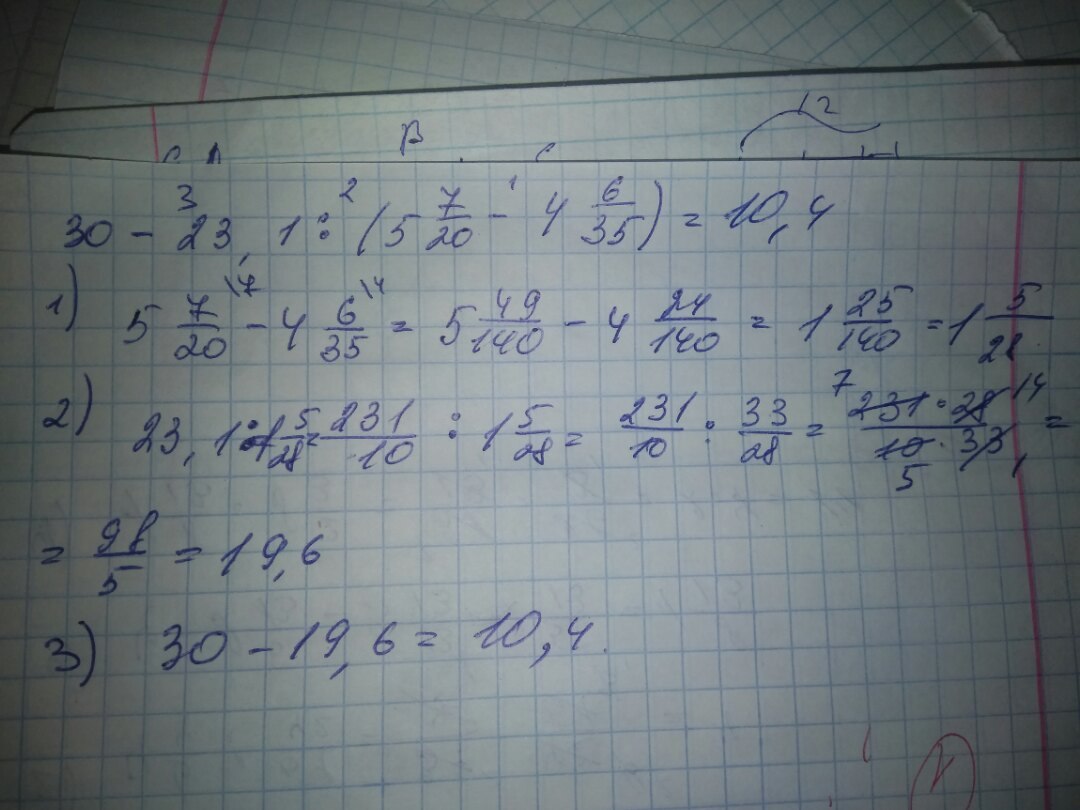 12
B
C A C
30 - 23,1 : (5 7/20 - 4 6/35) = 10,4
1) 5 7/20 \7 - 4 6/35 \4 = 5 49/140 - 4 24/140 = 1 25/140 = 1 5/28
2) 23,1 : 1 5/28 = 231/10 : 1 5/28 = 231/10 : 33/28 = 7 231 · 28 14 / 10 · 33 5 =
= 98/5 = 19,6
3) 30 - 19,6 = 10,4.